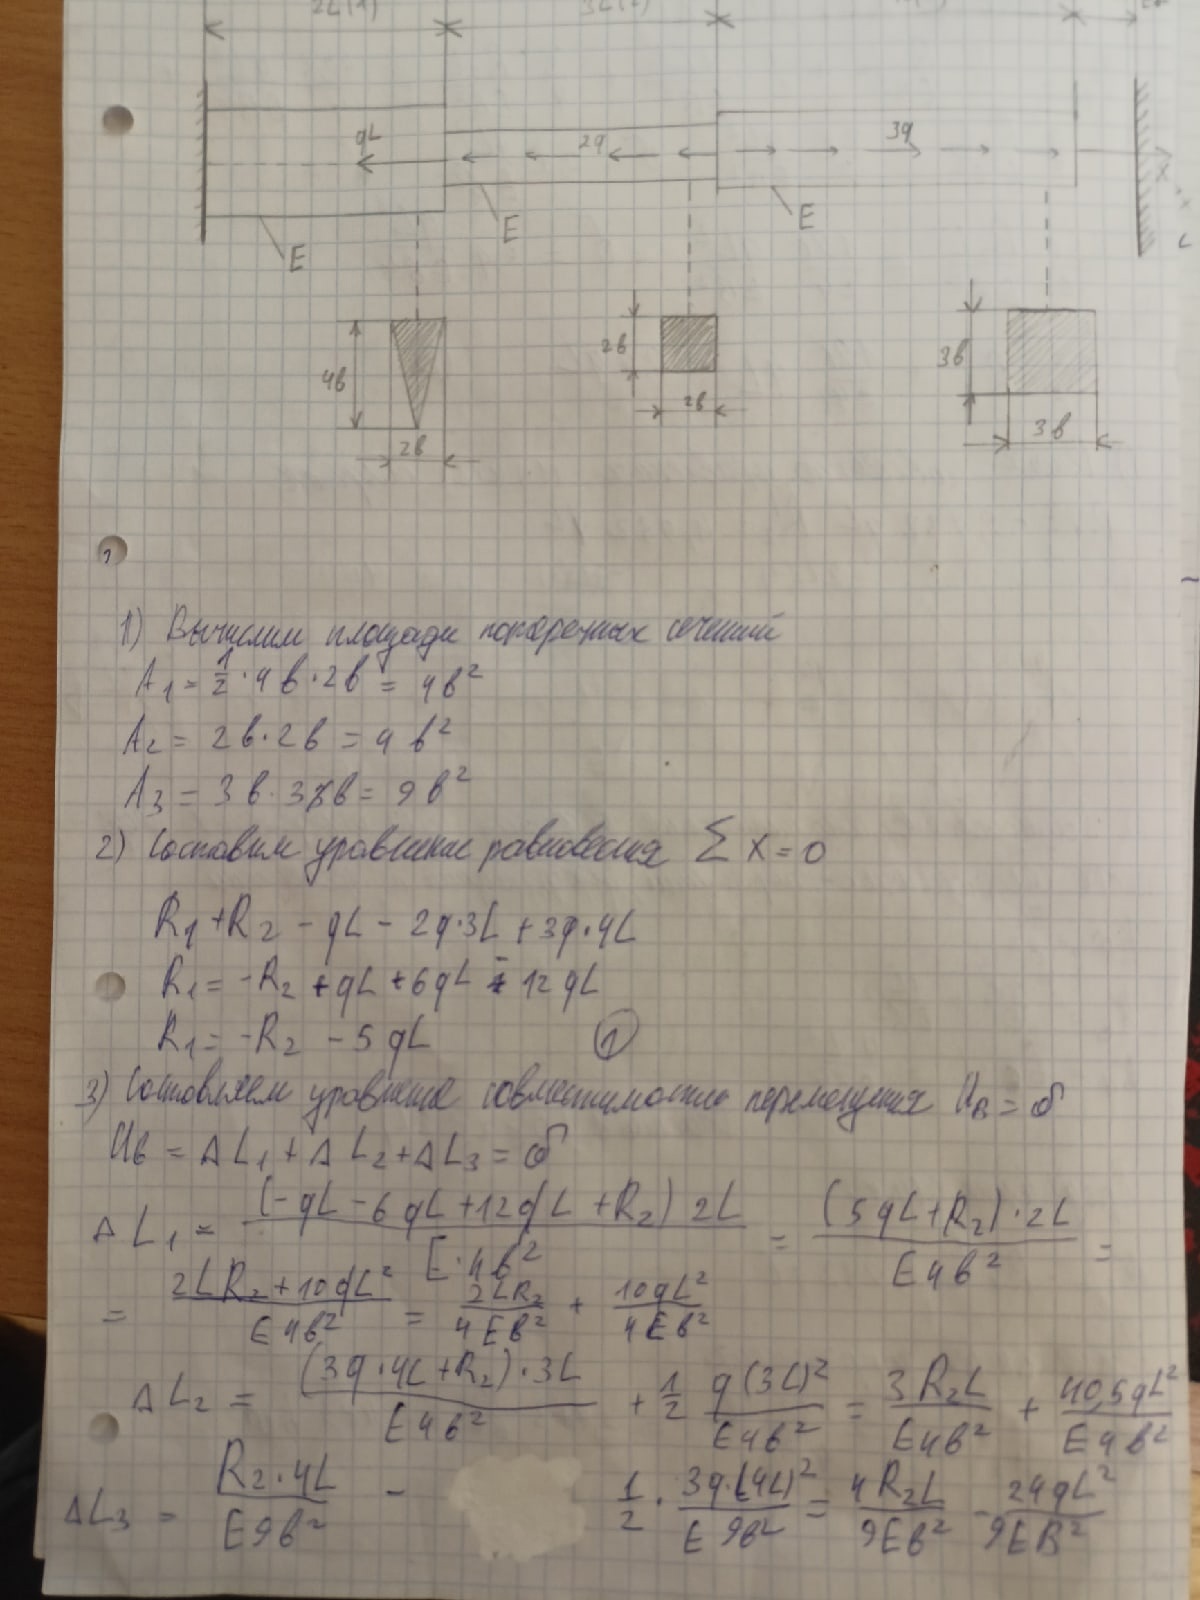 2L(1) 3L(2)
qL 2q 3q
E E E x
4в 2в 3в
2в 2в 3в
1) Вычислим площади поперечных сечений
A₁ = 1/2 · 4в · 2в = 4в²
A₂ = 2в · 2в = 4в²
A₃ = 3в · 3в = 9в²
2) Составим уравнение равновесия ∑ X = 0
R₁ + R₂ - qL - 2q·3L + 3q·4L
R₁ = -R₂ + qL + 6qL - 12qL
R₁ = -R₂ - 5qL ①
3) Составляем уравнение совместимости перемещения U_B = δ
U_в = ΔL₁ + ΔL₂ + ΔL₃ = δ
ΔL₁ = (-qL - 6qL + 12qL + R₂) 2L / E·4в² = (5qL + R₂)·2L / E4в² =
= 2LR₂ + 10qL² / E4в² = 2LR₂ / 4Eв² + 10qL² / 4Eв²
ΔL₂ = (3q·4L + R₂)·3L / E4в² + 1/2 q(3L)² / E4в² = 3R₂L / E4в² + 40,5qL² / E4в²
ΔL₃ = R₂·4L / E9в² - 1/2 · 3q·(4L)² / E9в² = 4R₂L / 9Eв² - 24qL² / 9EB²